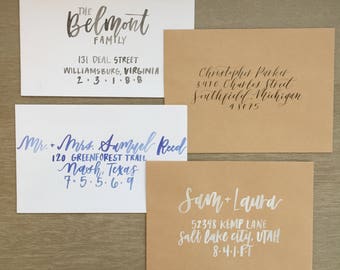 THE
Belmont
FAMILY
131 DEAL STREET
WILLIAMSBURG, VIRGINIA
2 · 3 · 1 · 8 · 8
Christopher Parker
Charles Street
Southfield, Michigan
Mr. + Mrs. Samuel Reed
120 GREENFOREST TRAIL
Texas
7 · 5 · 5 · 6 · 9
Sam + Laura
52348 KEMP LANE
Salt lake city, UTAH
8 · 4 · 1